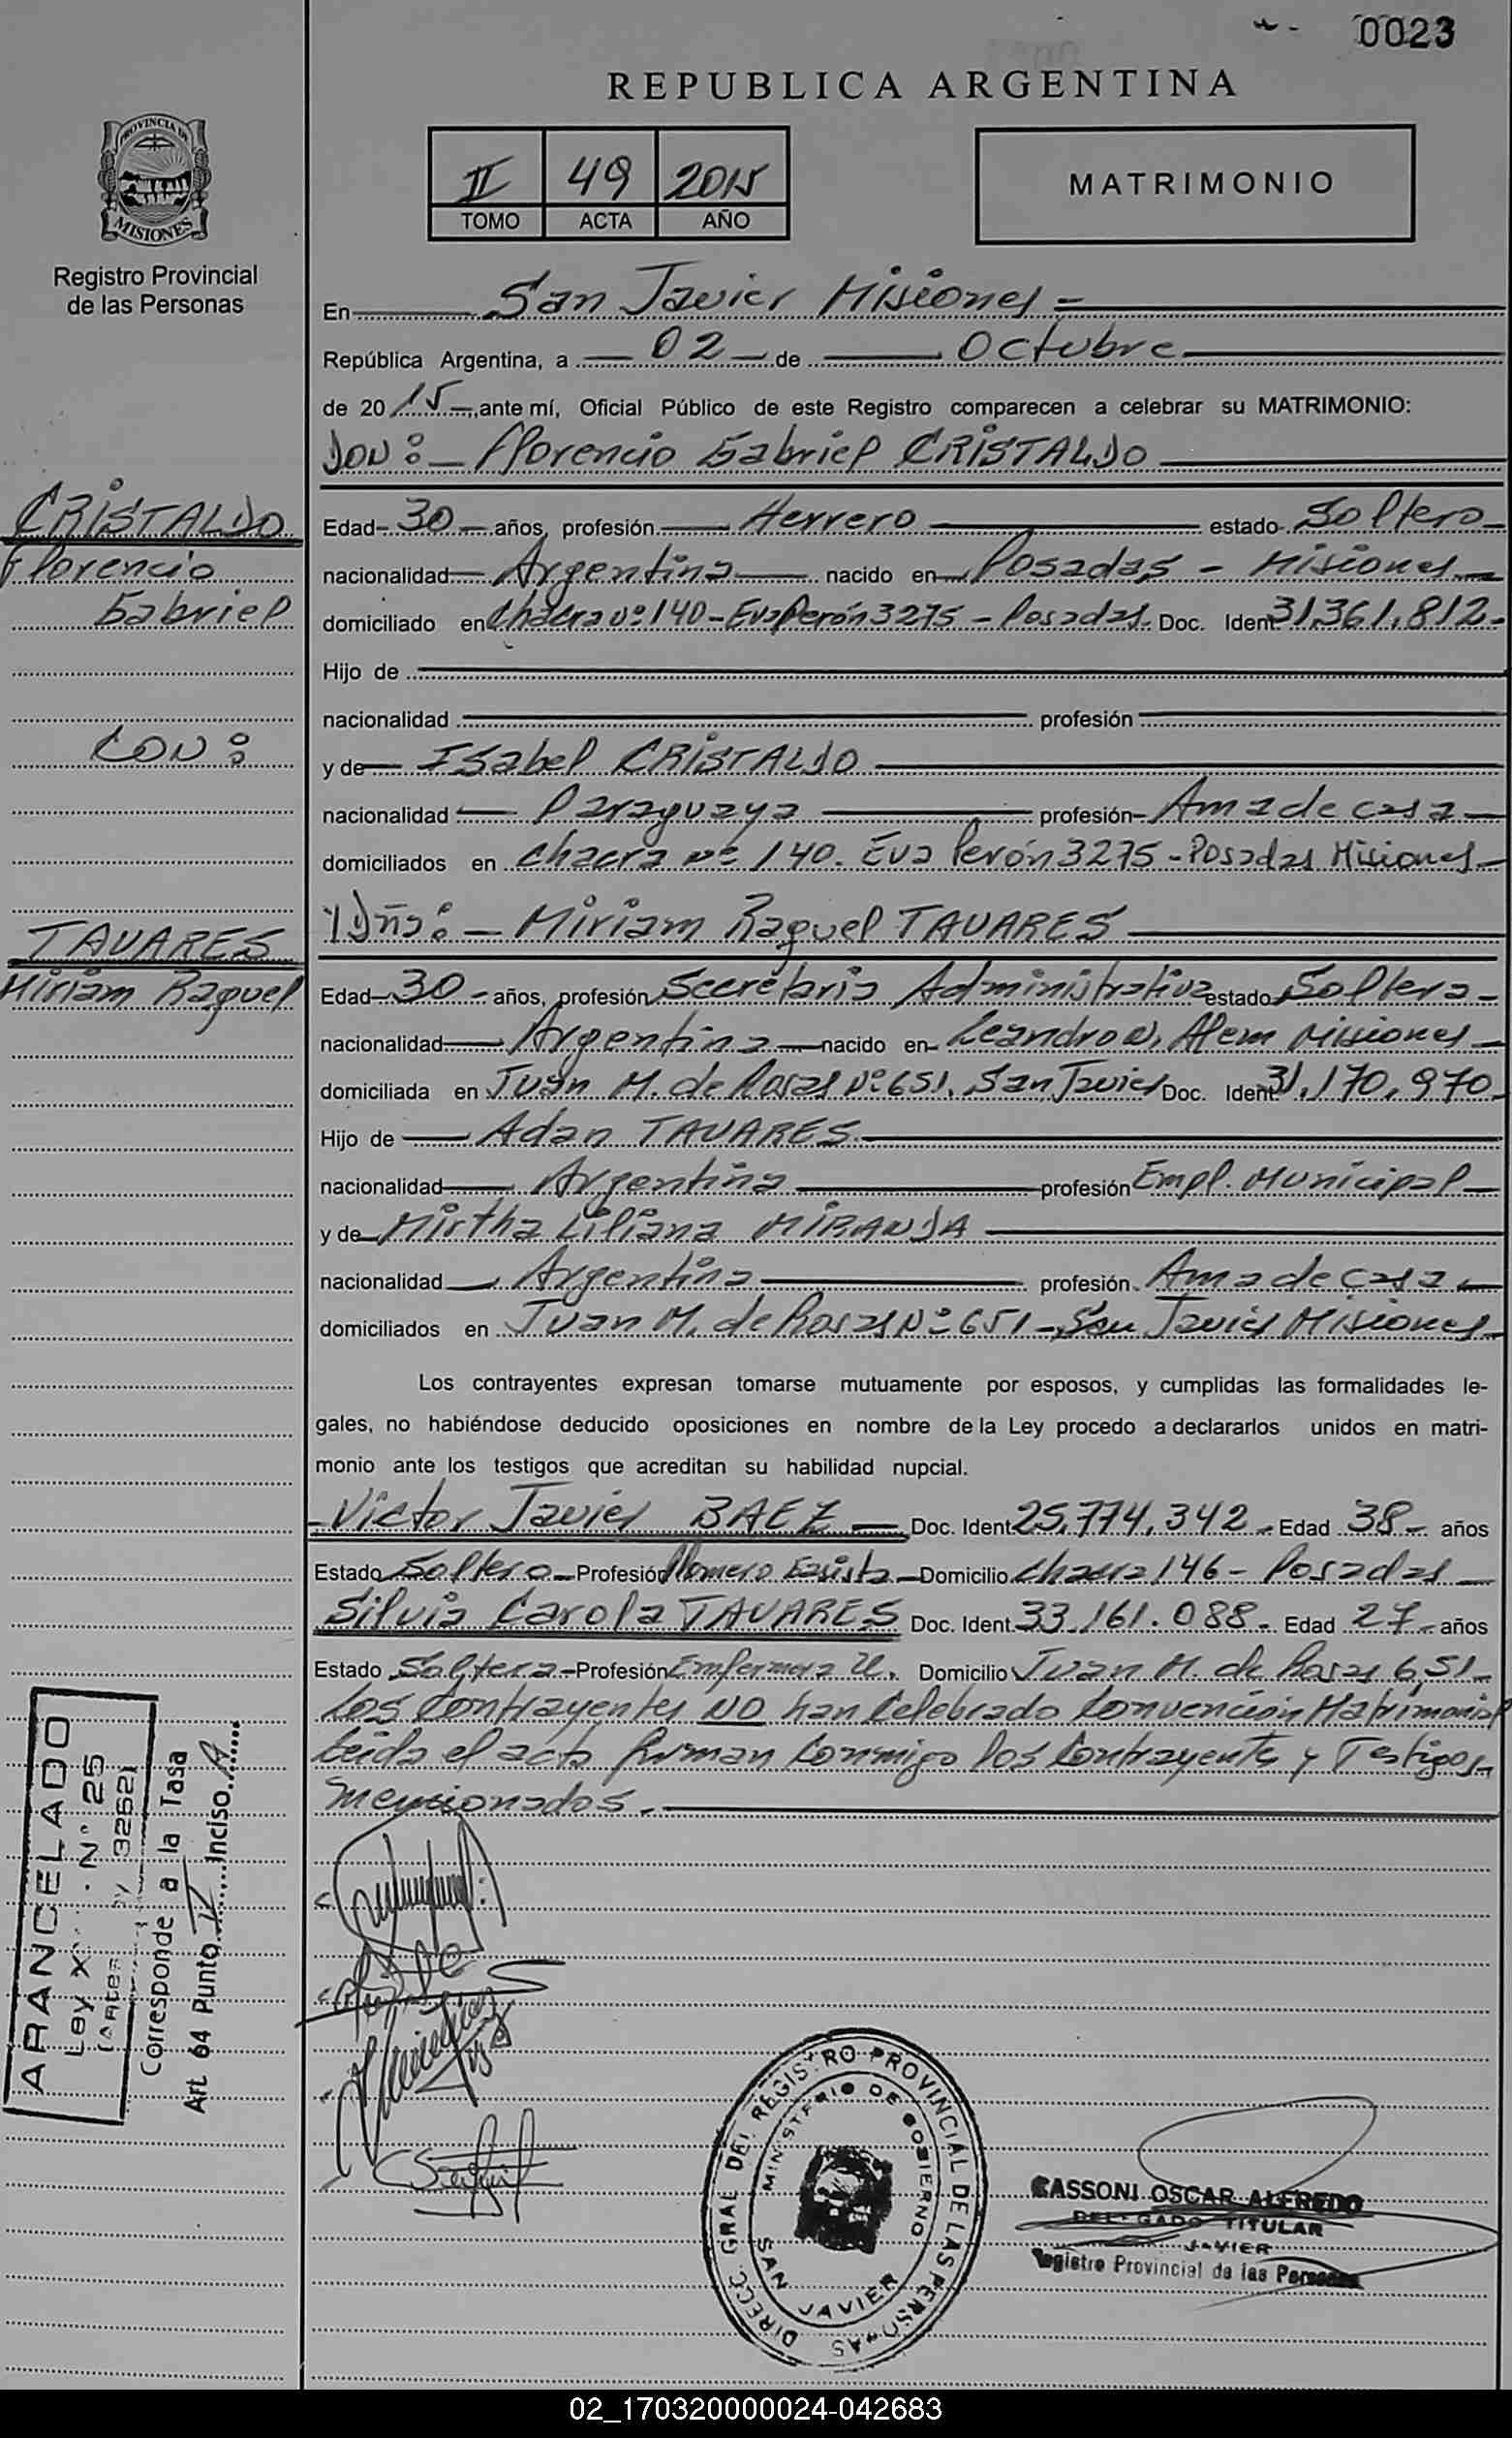 0023
REPUBLICA ARGENTINA
PROVINCIA DE
MISIONES
Registro Provincial
de las Personas
II 49 2015
TOMO ACTA AÑO
MATRIMONIO
En San Javier Misiones =
República Argentina, a 02 de Octubre
de 2015, ante mí, Oficial Público de este Registro comparecen a celebrar su MATRIMONIO:
DON: Florencio Gabriel CRISTALDO
CRISTALDO
Florencio
Gabriel
CON:
TAVARES
Miriam Raquel
Edad 30 años, profesión Herrero estado Soltero
nacionalidad Argentina nacido en Posadas - Misiones
domiciliado en Chacra Nº 140 - Eva Perón 3275 - Posadas Doc. Ident 31.361.812
Hijo de
nacionalidad profesión
y de Isabel CRISTALDO
nacionalidad Paraguaya profesión Ama de casa
domiciliados en Chacra Nº 140. Eva Perón 3275 - Posadas Misiones
Y Dña: Miriam Raquel TAVARES
Edad 30 años, profesión Secretaria Administrativa estado Soltera
nacionalidad Argentina nacido en Leandro N. Alem Misiones
domiciliada en Juan M. de Rosas Nº 651. San Javier Doc. Ident 31.170.970
Hijo de Adan TAVARES
nacionalidad Argentina profesión Empl. Municipal
y de Mirtha Liliana MIRANDA
nacionalidad Argentina profesión Ama de casa
domiciliados en Juan M. de Rosas Nº 651 - San Javier Misiones
Los contrayentes expresan tomarse mutuamente por esposos, y cumplidas las formalidades le-
gales, no habiéndose deducido oposiciones en nombre de la Ley procedo a declararlos unidos en matri-
monio ante los testigos que acreditan su habilidad nupcial.
Victor Javier BAEZ Doc. Ident 25.774.342 Edad 38 años
Estado Soltero Profesión Plomero Gasista Domicilio Chacra 146 - Posadas
Silvia Carola TAVARES Doc. Ident. 33.161.088 Edad 27 años
Estado Soltera Profesión Enfermera U. Domicilio Juan M. de Rosas 651
Los Contrayentes NO han Celebrado Convención Matrimonial
Leida el acta firman Conmigo los Contrayentes y Testigos
mencionados.
ARANCELADO
Ley X Nº 25
(Antes 3262)
Corresponde a la Tasa
Art. 64 Punto IV Inciso A
DIRECC. GRAL DEL REGISTRO PROVINCIAL DE LAS PERSONAS
MINISTERIO DE GOBIERNO
SAN JAVIER
CASSONI OSCAR ALFREDO
DELEGADO TITULAR
JAVIER
Registro Provincial de las Personas
02_170320000024-042683